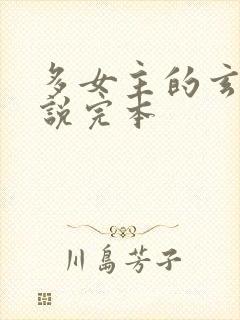 多女主的玄
說完本
川島芳子